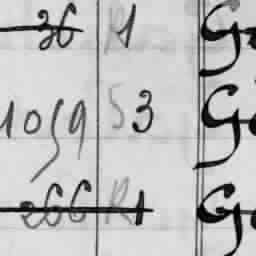 36 R1 Ge
1059 S3 Ge
266 R1 Ge